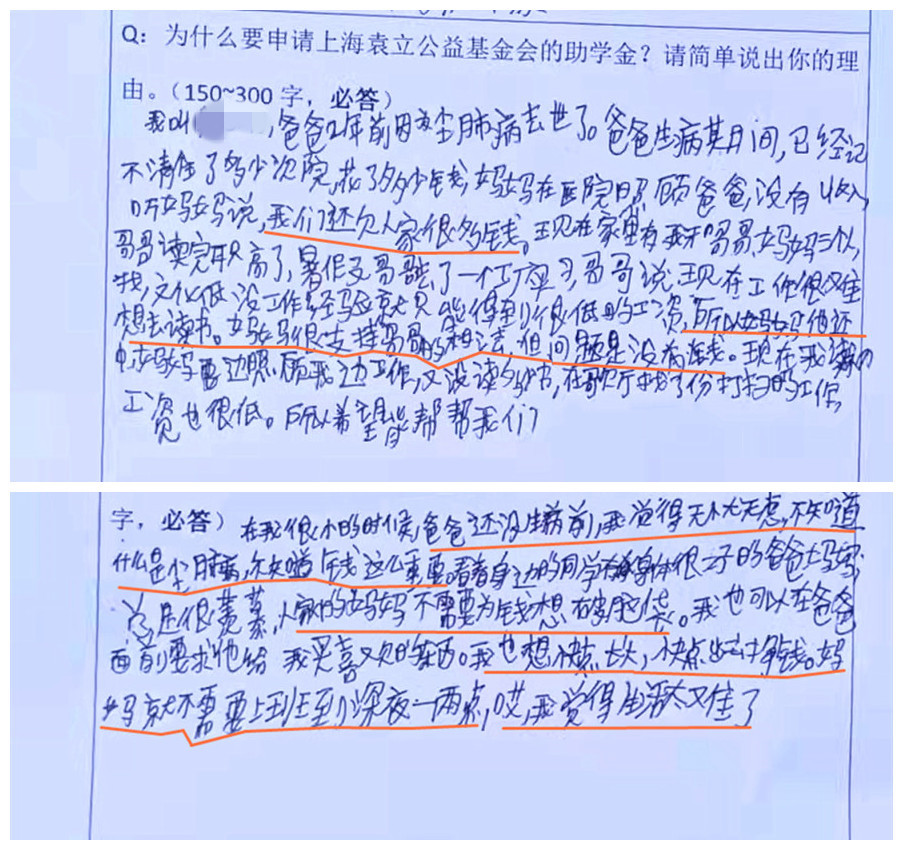 Q：为什么要申请上海袁立公益基金会的助学金？请简单说出你的理
由。（150~300 字，必答）
我叫 ，爸爸2年前因为尘肺病去世了。爸爸生病其月间，已经记
不清住了多少次院，花了多少钱，妈妈在医院照顾爸爸，没有收入，
听妈妈说，我们还欠人家很多钱。现在家里有我和哥哥、妈妈三个人，
哥哥读完职高了，暑假哥哥去了一个工厂实习，哥哥说现在工作很难
找，文化低没工作经验就只能得到很低的工资，所以妈妈他还
想去读书。妈妈很支持哥哥的想法，但问题是没有钱。现在我读初
中，妈妈要边照顾我边工作，又没读多少书，在歌厅找了份打扫的工作，
工资也很低。所以希望能帮帮我们
字，必答）在我很小的时候，爸爸还没生病前，我觉得无忧无虑，不知道
什么是尘肺病，不知道钱这么重要看着身边的同学有身体很好的爸爸妈妈，
总是很羡慕，人家的妈妈不需要为钱想破脑袋。我也可以在爸爸
面前要求他给我买喜欢的东西。我也想快点长大，快点出去打工挣钱。妈
妈就不需要上班上到深夜一两点，哎，我觉得生活太难了